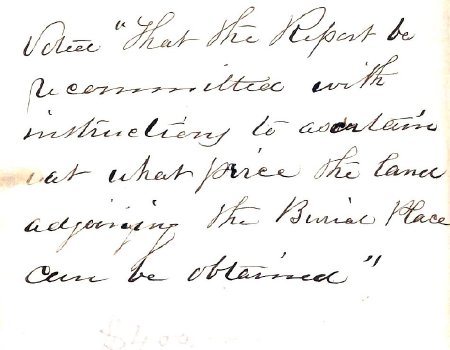 Voted "That the Report be
recommitted with
instructions to ascertain
at what price the land
adjoining the Burial Place
can be obtained"
$400